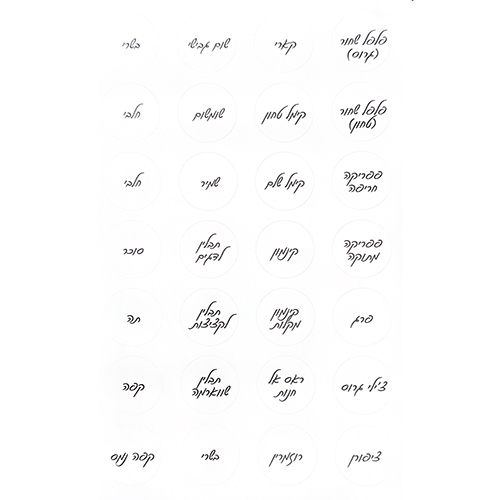 פלפל שחור
(גרוס)
קארי
שום גבישי
בשרי
פלפל שחור
(טחון)
קימל טחון
שומשום
חלבי
פפריקה
חריפה
קימל שלם
שמיר
חלבי
פפריקה
מתוקה
קינמון
תבלין
לדגים
סוכר
פרג
קינמון
מקלות
תבלין
לקציצות
תה
צ'ילי גרוס
ראס אל
חנות
תבלין
שווארמה
קפה
ציפורן
רוזמרין
בשרי
קפה נמס